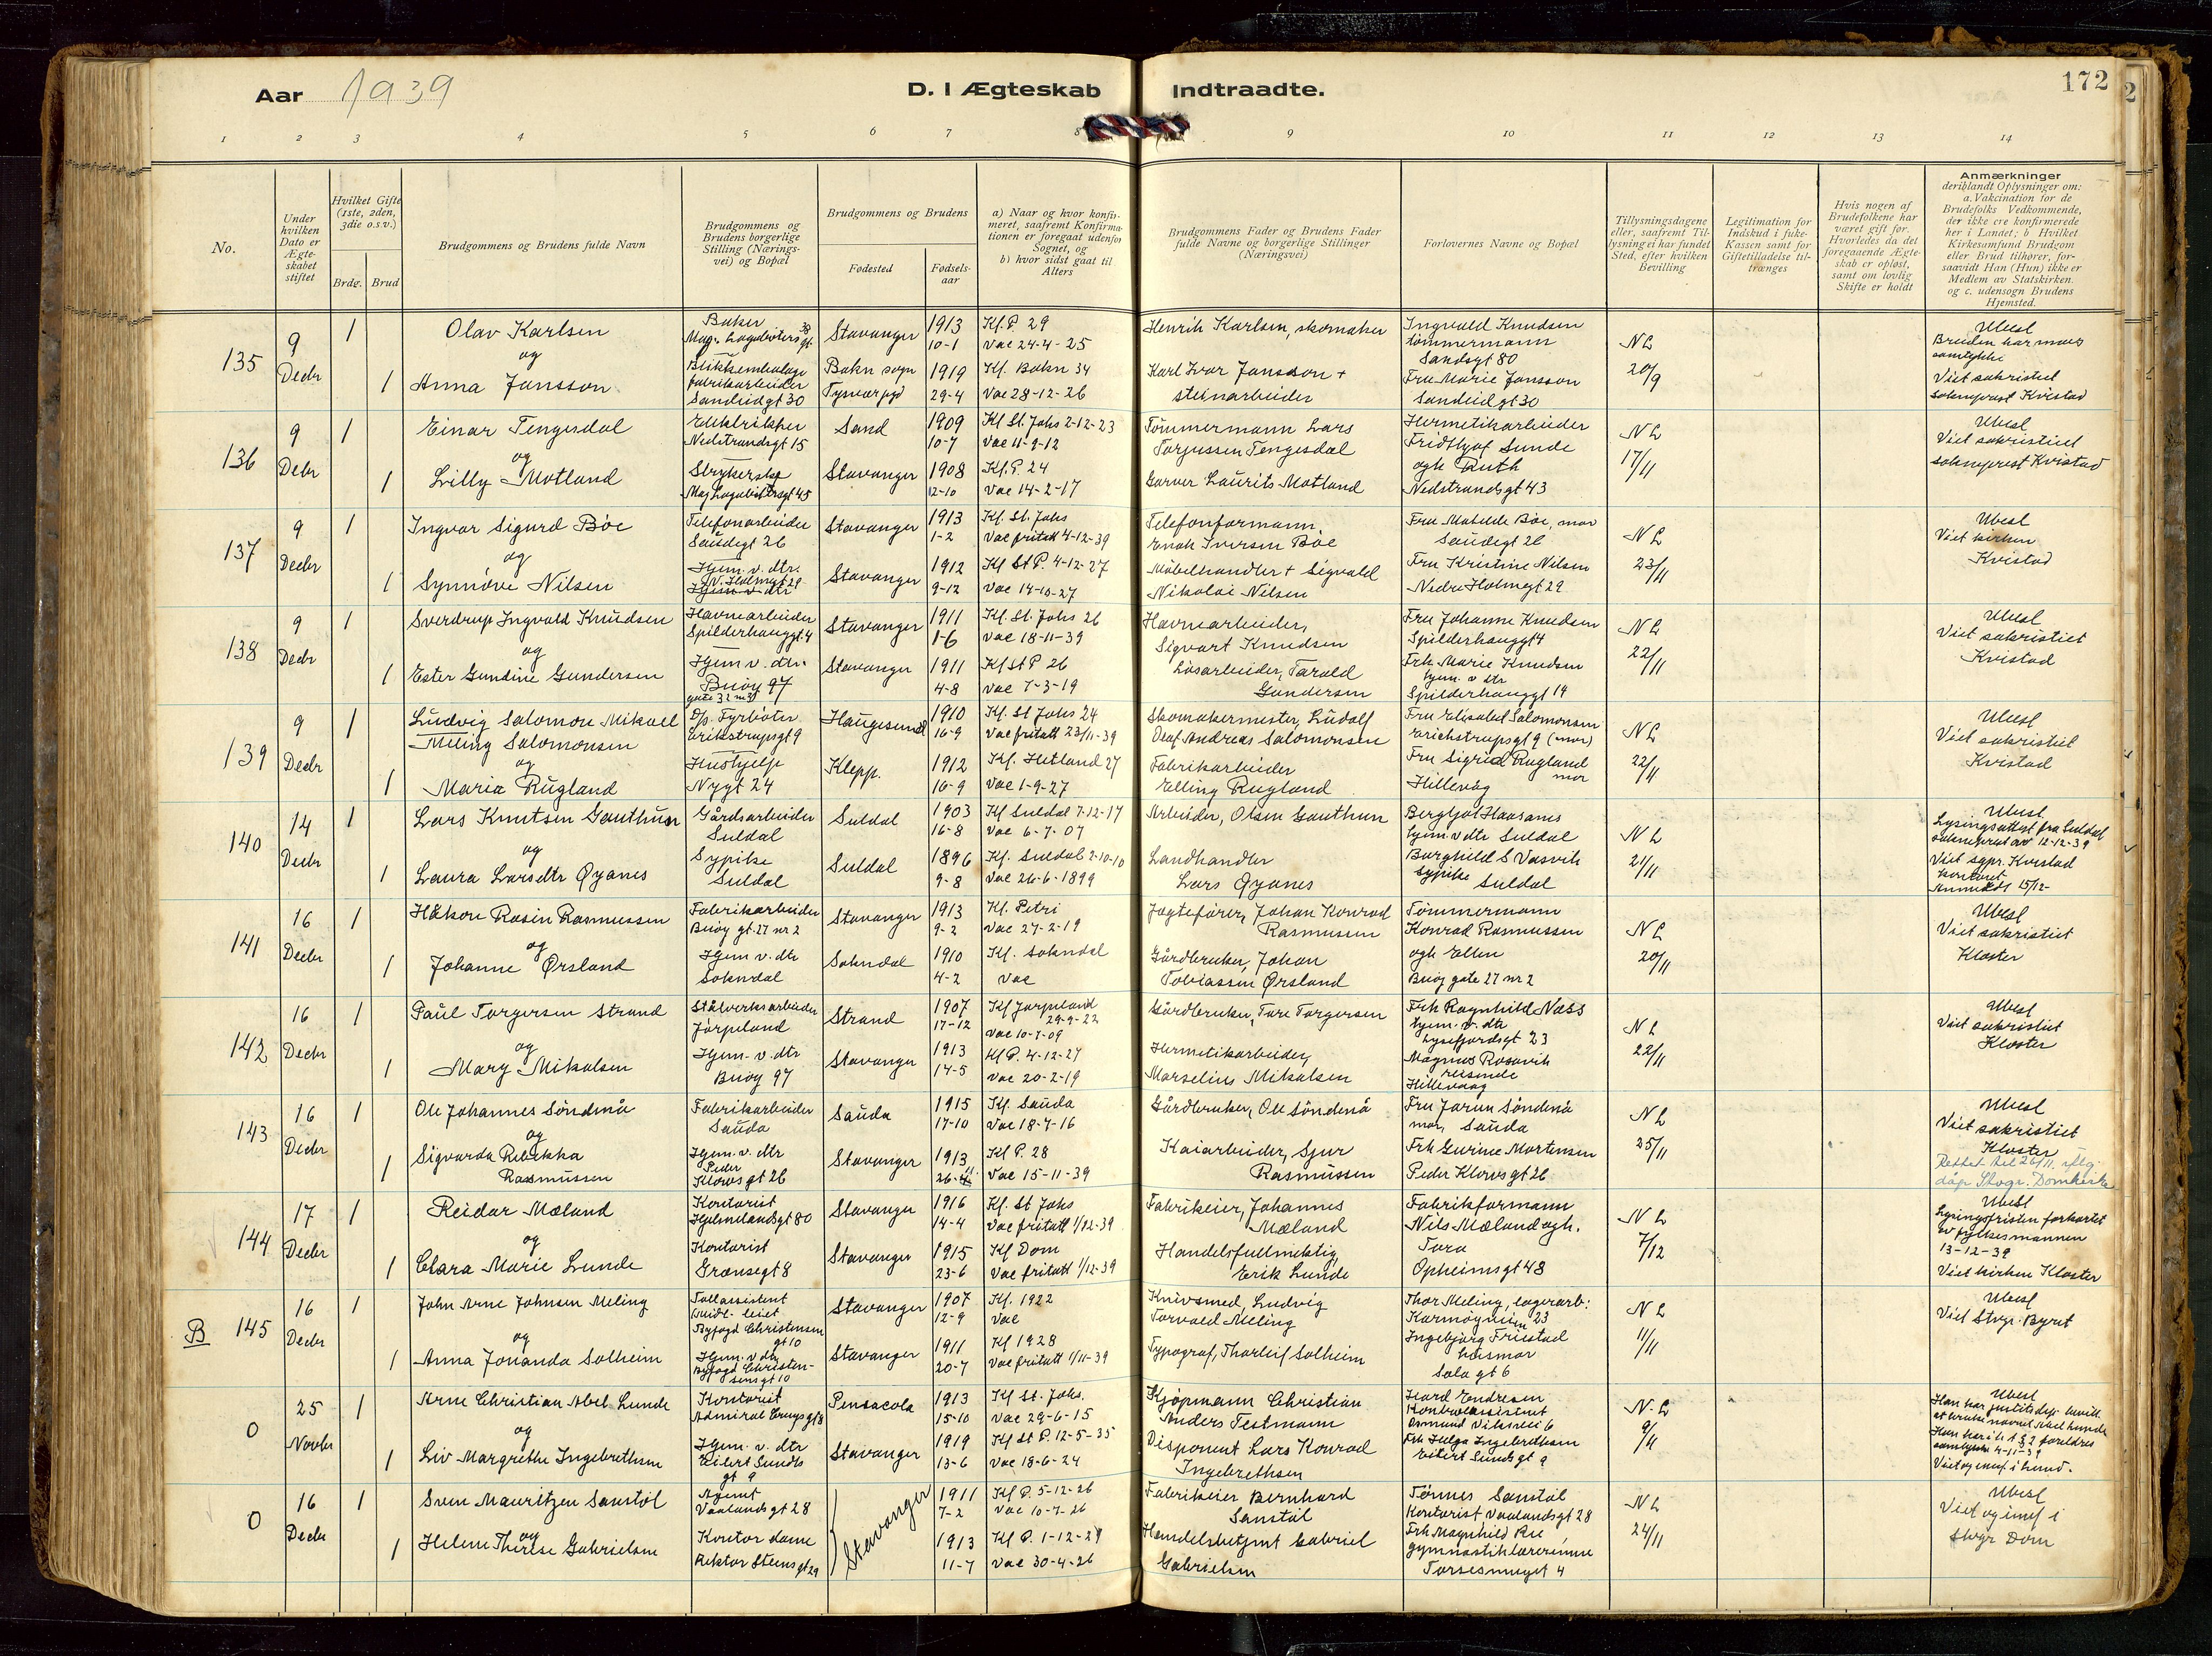 Aar 1939
D. I Ægteskab Indtraadte.
172
1 2 3 4 5 6 7 8 9 10 11 12 13 14
No.
Under hvilken Dato er Ægteskabet stiftet
Hvilket Gifte (1ste, 2den, 3die o.s.v.)
Brdg. Brud
Brudgommens og Brudens fulde Navn
Brudgommens og Brudens borgerlige Stilling (Næringsvei) og Bopæl
Brudgommens og Brudens
Fødested
Fødselsaar
a) Naar og hvor konfirmeret, saafremt Konfirmationen er foregaat udenfor Sognet, og
b) hvor sidst gaat til Alters
Brudgommens Fader og Brudens Fader fulde Navne og borgerlige Stillinger (Næringsvei)
Forlovernes Navne og Bopæl
Tillysningsdagene eller, saafremt Tillysning ei har fundet Sted, efter hvilken Bevilling
Legitimation for Indskud i fuke-Kassen samt for Giftetilladelse tiltrænges
Hvis nogen af Brudefolkene har været gift før. Hvorledes da det foregaaende Ægteskab er opløst, samt om lovlig Skifte er holdt
Anmærkninger
deriblandt Oplysninger om: a. Vakcination for de Brudefolks Vedkommende, der ikke ere konfirmerede her i Landet; b Hvilket Kirkesamfund Brudgom eller Brud tilhører, forsaavidt Han (Hun) ikke er Medlem av Statskirken. og c. udensogn Brudens Hjemsted.
135
9 Decbr
1
Olav Karlsen
og
1
Anna Jansson
Baker
Mag. Lagabøtersgt. 38
Blikkemballage
fabrikarbeider
Sandeidgt 30
Stavanger
Bokn sogn
Tysværpgd
1913
10-1
1919
29-4
Kf. P. 29
Vac 24-4-25
Kf. Bokn 34
Vac 28-12-26
Henrik Karlsen, skomaker
Karl Ivar Jansson +
stenarbeider
Ingvald Knudsen
tømmermann
Sandsgt 80
Fru Marie Jansson
Sandeidgt 30
NL
20/9
Ubesl
Bruden har mors
samtykke
Viet sakristiet
sokneprest Kvistad
136
9 Debr
1
Einar Tengesdal
og
1
Lilly Motland
Elektriker
Nedstrandsgt 15
Strykerske
Mag Lagabøtersgt 45
Sand
Stavanger
1909
10-7
1908
12-10
Kf St. Johs 2-12-23
Vac 11-9-12
Kf. P. 24
Vac 14-2-17
Tømmermann Lars
Torjussen Tengesdal
Garver Laurits Motland
Hermetikarbeider
Fridtjof Sunde
ogh Ruth
Nedstrandsgt 43
NL
17/11
Ubesl
Viet sakristiet
sokneprest Kvistad
137
9 Decbr
1
Ingvar Sigurd Bøe
og
1
Synnøve Nilsen
Telefonarbeider
Saudegt 26
Hjem. v. dtr.
N. Holmegt 29
Hjem v. dtr
Stavanger
Stavanger
1913
1-2
1912
9-12
Kf. St. Johs
Vac fritatt 4-12-39
Kf St P. 4-12-27
Vac 14-10-27
Telefonformann.
Enok Iversen Bøe
Møbelhandler + Sigvald
Nikolai Nilsen
Fru Matilde Bøe, mor
Saudegt 26
Fru Kristine Nilsen
Nedre Holmegt 29
NL
23/11
Ubesl
Viet kirken
Kvistad
138
9 Decbr
1
Sverdrup Ingvald Knudsen
og
1
Ester Gundine Gundersen
Havnearbeider
Spilderhauggt. 4
Hjem v. dtr.
Buøy 97
gate 32 nr 3
Stavanger
Stavanger
1911
1-6
1911
4-8
Kf. St. Johs 26
Vac 18-11-39
Kf St P. 26
Vac 7-3-19
Havnearbeider,
Sigvart Knudsen
Løsarbeider, Tarald
Gundersen
Fru Johanne Knudsen
Spilderhauggt 4
Frk Marie Knudsen
hjem. v dtr
Spilderhauggt 14
NL
22/11
Ubesl
Viet sakristiet
Kvistad
139
9 Decbr
1
Ludvig Salomon Mikael
Meling Salomonsen
og
1
Maria Rugland
D/p. Fyrbøter
Erikstrupsgt 9
Hushjelp
Nygt 24
Haugesund
Klepp.
1910
16-9
1912
16-9
Kf. St Johs 24
Vac fritatt 23/11-39
Kf. Hetland 27
Vac 1-9-27
Skomakermester, Ludolf
Olaf Andreas Salomonsen
Fabrikarbeider
Elling Rugland
Fru Elisabet Salomonsen
Erichstrupsgt 9 (mor)
Fru Sigrid Rugland
mor
Hillevåg
NL
22/11
Ubesl
Viet sakristiet
Kvistad
140
14 Decbr
1
Lars Knutsen Gauthun
og
1
Laura Larsdtr Øyanes
Gårdsarbeider
Suldal
Sypike
Suldal
Suldal
Suldal
1903
16-8
1896
9-8
Kf Suldal 7-12-17
Vac 6-7-07
Kf. Suldal 2-10-10
Vac 26-6-1899
Arbeider, Olsen Gauthun
Landhandler
Lars Øyanes
Bergljot Havsanes
hjem. v dtr Suldal
Borghild S Vasvik
sypike Suldal
NL
21/11
Ubesl.
Lysingsattest fra Suldal
sokneprest av 12-12-39
Viet sgpr. Kvistad
kontoret
Anmeldt 15/12-
141
16 Decbr
1
Håkon Rosin Rasmussen
og
1
Johanne Ørsland
Fabrikarbeider
Buøy gt. 27 nr 2
Hjem v. dtr
Sokndal
Stavanger
Sokndal
1913
9-2
1910
4-2
Kf. Petri
Vac 27-2-19
Kf. Sokndal
Vac
Jagtefører, Johan Konrad
Rasmussen
Gårdbruker, Johan
Tobiassen Ørsland
Tømmermann
Konrad Rasmussen
ogh Ellen
Buøy gate 27 nr 2
NL
20/11
Ubesl
Viet sakristiet
Kloster
142
16 Decbr
1
Paul Torgersen Strand
og
1
Mary Mikalsen
Stålverksarbeider
Jørpeland
Hjem. v. dtr
Buøy 97
Strand
Stavanger
1907
17-12
1913
14-5
Kf Jørpeland
29-9-22
Vac 10-7-09
Kf P. 4-12-27
Vac 20-2-19
Gårdbruker, Tore Torgersen
Hermetikarbeider,
Marselius Mikalsen
Frk Ragnhild Næss
hjem. v. dtr
Lysefjordsgt 23
Magnus Rosavik
reisende
Hillevaag
NL
22/11
Ubesl
Viet sakristiet
Kloster
143
16 Decbr
1
Ole Johannes Søndenå
og
1
Sigvarda Rebekka
Rasmussen
Fabrikarbeider
Sauda
Hjem. v. dtr
Peder
Klowsgt 26
Sauda
Stavanger
1915
17-10
1913
Kf. Sauda
Vac 18-7-16
Kf P. 28
Vac 15-11-39
Gårdbruker, Ole Søndenå
Kaiarbeider, Sjur
Rasmussen
Fru Jorun Søndenå
mor, Sauda
Frk Gurine Mortensen
Peder Klowsgt 26
NL
25/11
Ubesl
Viet sakristiet
Kloster
Rettet til 26/11. iflg.
dåp Stvgr. Domkirke
144
17 Decbr
1
Reidar Mæland
og
1
Clara Marie Lunde
Kontorist
Hjelmelandsgt 80
Kontorist
Grensegt 8
Stavanger
Stavanger
1916
14-4
1915
23-6
Kf. St Johs
Vac fritatt 1/12-39
Kf Dom
Vac fritatt 1/12-39
Fabrikeier, Johannes
Mæland
Handelsfullmektig
Erik Lunde
Fabrikformann
Nils Mæland ogh.
Tora
Opheimsgt 48
NL
7/12
Ubesl
Lysingsfristen forkortet
av fylkesmannen
13-12-39
Viet kirken Kloster
B 145
16 Decbr
1
John Arne Johnsen Meling
og
1
Anna Jonanda Solheim
Tollassistent
Byfogd Christensen
gt 10
Hjem. v dtr
Byfogd Christensensgt 10
Stavanger
Stavanger
1907
12-9
1911
20-7
Kf. 1922
Vac
Kf 1928
Vac fritatt 1/11-39
Knivsmed, Ludvig
Torvald Meling
Typograf, Thorleif Solheim
Thor Meling, lagerarb:
Karmøygt 23
Ingebjørg Friestad
husmor
Sola gt 6
NL
11/11
Ubesl
Viet Stvgr. Byret
0
25 Novbr
1
Arne Christian Abel Lunde
og
1
Liv Margrethe Ingebrethsen
Kontorist
Admiral Cruysgt 8
Hjem. v. dtr
Eilert Sundts
gt 9
Pensacola
Stavanger
1913
15-10
1919
13-6
Kf St. Johs.
Vac 29-6-15
Kf St P. 12-5-35
Vac 18-6-24
Kjøpmann Christian
Anders Testmann
Disponent Lars Konrad
Ingebrethsen
Kontorassistent
Frk Helga Ingebrethsen
Eilert Sundsgt 9
N.L
9/11
Ubesl
Han har justitsdep. bevill.
at bruke navnet Abel Lunde
foreldres
samtykke 4-11-39
0
16 Decbr
1
Sven Mauritzen Sanstøl
og
1
Helene Therese Gabrielsen
Agent
Vaalandsgt 28
Kontor dame
Rektor Steensgt 29
Stavanger
1911
7-2
1913
11-7
Kf P. 5-12-26
Vac 10-7-26
Kf P. 1-12-29
Vac 30-4-26
Fabrikeier Bernhard
Sanstøl
Handelsbetjent Gabriel
Gabrielsen
Tønnes Sanstøl
Kontorist Vaalandsgt 28
Frk Magnhild Ree
gymnastiklærerinne
NL
24/11
Ubesl
Viet og innf i
Stvgr Dom